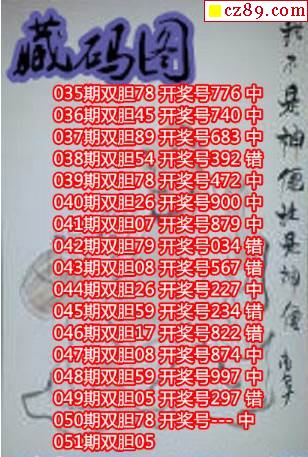 cz89.com
藏码图
035期双胆78 开奖号776 中
036期双胆45 开奖号740 中
037期双胆89 开奖号683 中
038期双胆54 开奖号392 错
039期双胆78 开奖号472 中
040期双胆26 开奖号900 中
041期双胆07 开奖号879 中
042期双胆79 开奖号034 错
043期双胆08 开奖号567 错
044期双胆26 开奖号227 中
045期双胆59 开奖号234 错
046期双胆17 开奖号822 错
047期双胆08 开奖号874 中
048期双胆59 开奖号997 中
049期双胆05 开奖号297 错
050期双胆78 开奖号--- 中
051期双胆05